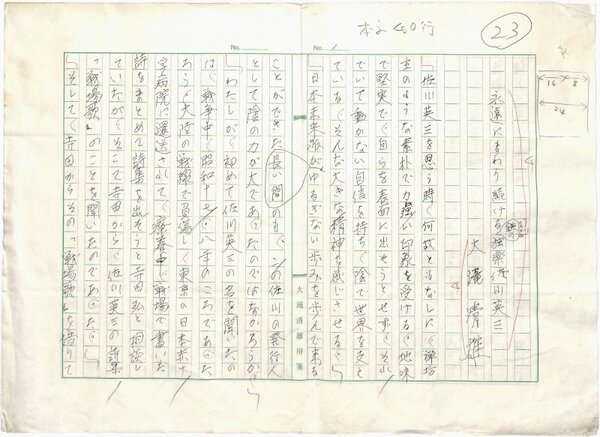 23
本文40行
No. 1
No.
永遠にまわり続ける独楽佐川英三
大滝清雄
佐川英三を思う時、何故ともなしに、禅坊
主のような素朴で力強い印象を受ける。地味
で堅実で、自らを表面に出そうとせず、それ
でいて動かない自信を持ち、陰で世界を支え
ている、そんな大きな精神を感じさせる。
日本未来派がゆるぎない歩みを歩んで来る
ことができた長い間のも、この佐川の発行人
としての陰の力が大であったのではなかろうか。
わたしが、初めて佐川英三の名を聞いたの
は、戦争中、昭和十七、八年のころであった
ろう。大陸の戦線で負傷して、東京の日本赤十
字病院に還送されて、療養中、戦場で書いた
詩をまとめて詩集を出そうと寺田弘と相談し
ていたが、そこで寺田から、佐川英三の詩集
「戦場歌」のことを聞いたのであった。
そして、寺田からその「戦場歌」を借りて
大滝清雄用箋
16
8
24